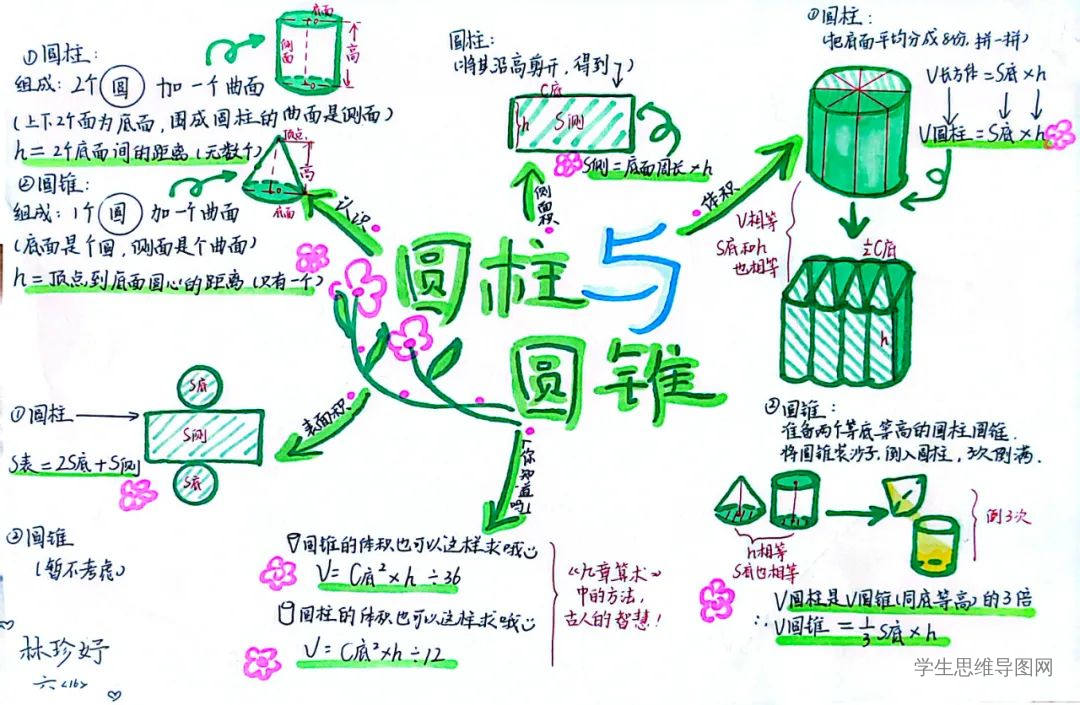 圆柱与
圆锥
认识
①圆柱:
组成:2个圆加一个曲面
(上下2个面为底面,围成圆柱的曲面是侧面)
h=2个底面间的距离(无数个)
底面
o
侧面
高
o
②圆锥:
组成:1个圆加一个曲面
(底面是个圆,侧面是个曲面)
h=顶点到底面圆心的距离(只有一个)
顶点
高
o
底面
侧面积
圆柱:
(将其沿高剪开,得到↓)
C底
h
S侧
S侧=底面周长×h
体积
①圆柱:
(把底面平均分成8份,拼一拼)
V长方体=S底×h
V圆柱=S底×h
V相等
S底和h
也相等
½C底
h
②圆锥:
准备两个等底等高的圆柱圆锥.
将圆锥装沙子,倒入圆柱,3次倒满.
h相等
S底也相等
倒3次
V圆柱是V圆锥(同底等高)的3倍
∴V圆锥=⅓S底×h
表面积
①圆柱
S底
S侧
S底
S表=2S底+S侧
②圆锥
(暂不考虑)
「你知道吗」
圆锥的体积也可以这样求哦
V=C底²×h÷36
圆柱的体积也可以这样求哦
V=C底²×h÷12
《九章算术》
中的方法,
古人的智慧!
林珍妤
六<16>
学生思维导图网